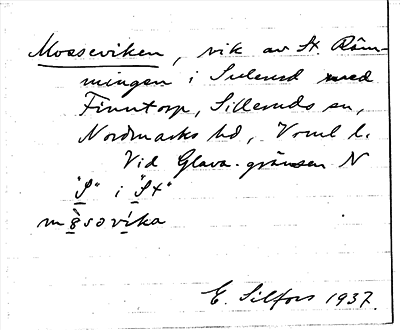 Mosseviken, vik av St. Röm-
mingen i Sulerud med
Finntorp, Silleruds sn,
Nordmarks hd, Vrml l.
Vid Glava-gränsen N
"S" i "St"
m
E. Silfors 1937.